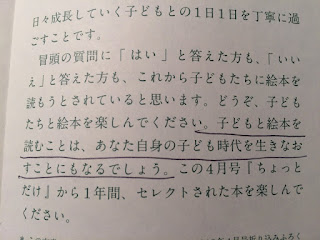 日々成長していく子どもとの1日1日を丁寧に過
ごすことです。
冒頭の質問に「はい」と答えた方も、「いい
え」と答えた方も、これから子どもたちに絵本を
読もうとされていると思います。どうぞ、子ども
たちと絵本を楽しんでください。子どもと絵本を
読むことは、あなた自身の子ども時代を生きなお
すことにもなるでしょう。この4月号『ちょっと
だけ』から1年間、セレクトされた本を楽しんで
ください。